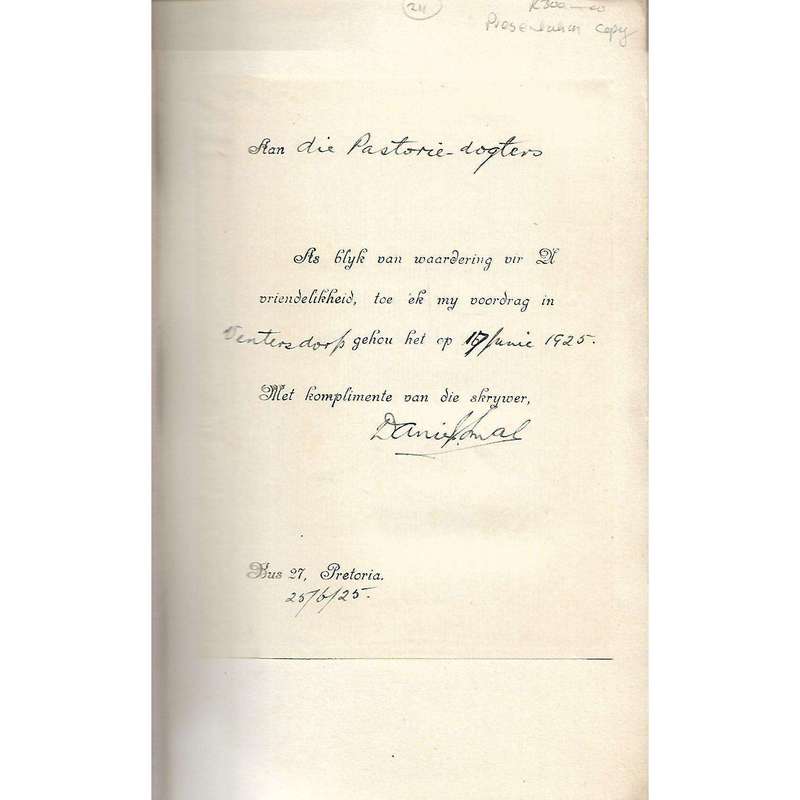 24
R300-00
Presentation copy
Aan die Pastorie-dogters
As blyk van waardering vir U
vriendelikheid, toe ek my voordrag in
Ventersdorp gehou het op 17 Junie 1925.
Met komplimente van die skrywer,
Bus 27, Pretoria.
25/6/25.